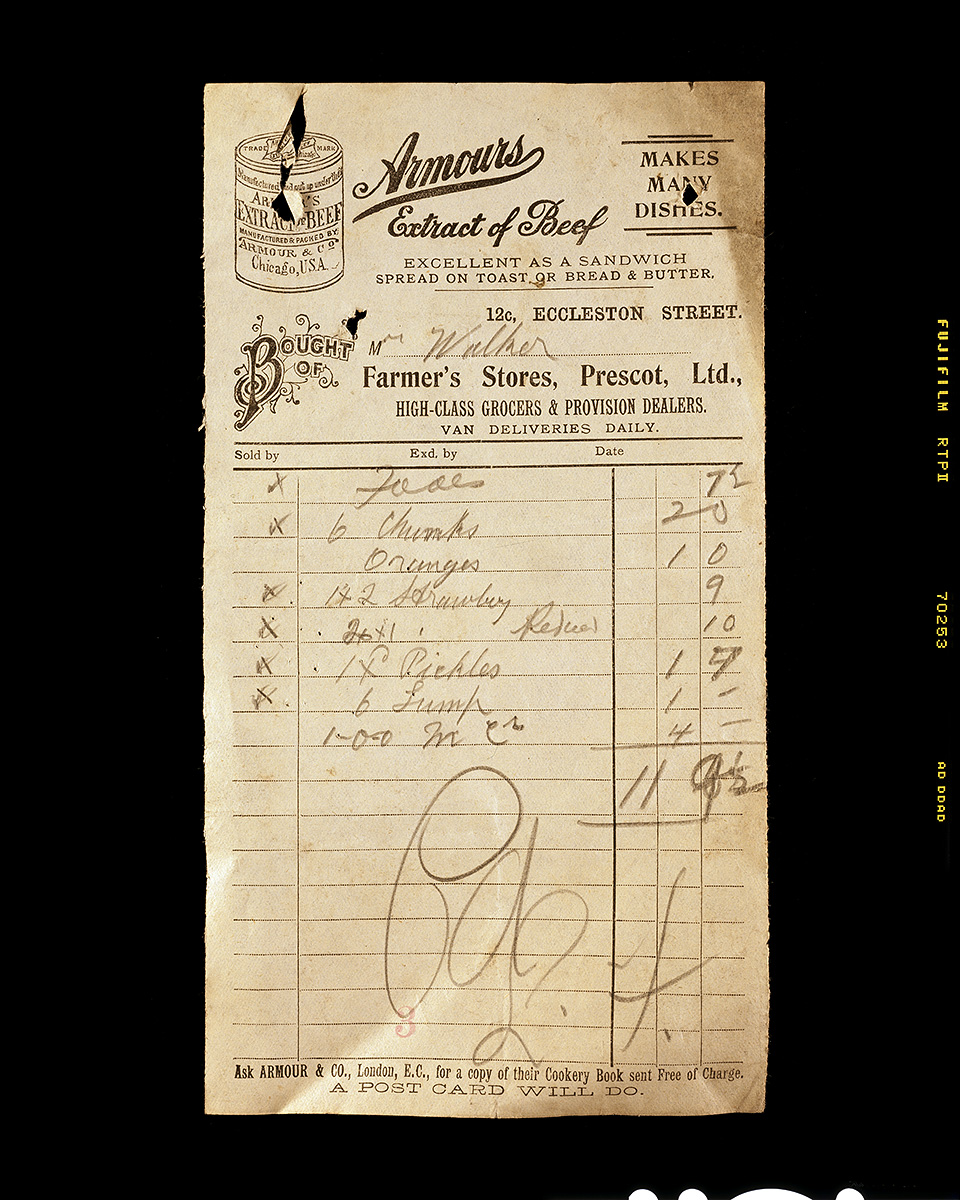 TRADE MARK
Manufactured and put up under the
EXTRACT OF BEEF
MANUFACTURED & PACKED BY
ARMOUR & Co
Chicago, U.S.A.
Armours
Extract of Beef
MAKES
MANY
DISHES.
EXCELLENT AS A SANDWICH
SPREAD ON TOAST OR BREAD & BUTTER.
12c, ECCLESTON STREET.
BOUGHT OF
Mr Walker
Farmer's Stores, Prescot, Ltd.,
HIGH-CLASS GROCERS & PROVISION DEALERS.
VAN DELIVERIES DAILY.
Sold by Exd. by Date
x 7½
x 6 Chunks 2 0
Oranges 1 0
x 1 x 2 Strawby 9
x 2x1 10
x 1 x Pickles 1 7
x 6 Lump 1 -
1-0-0 4 -
11
3
Ask ARMOUR & CO., London, E.C., for a copy of their Cookery Book sent Free of Charge.
A POST CARD WILL DO.
FUJIFILM RTPII
70253